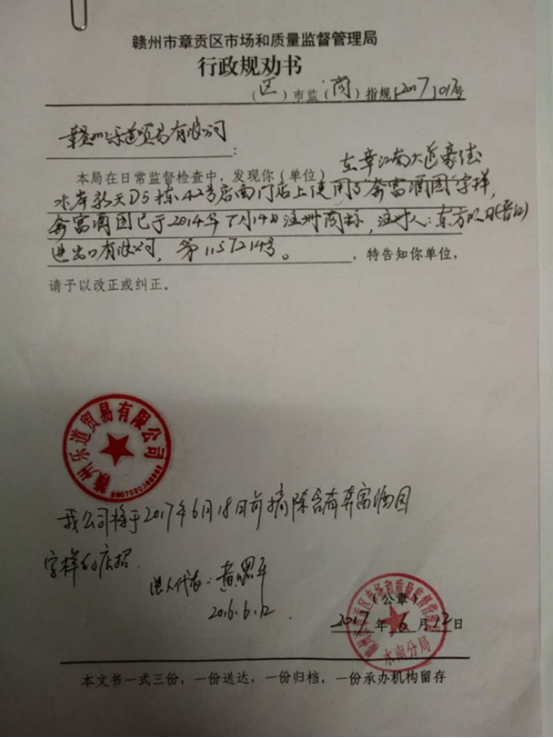 赣州市章贡区市场和质量监督管理局
行政规劝书
(区)市监(商)指规[2017]012号
赣州乐道贸易有限公司
:
本局在日常监督检查中,发现你(单位)在章江南大道豪德
水岸新天D5栋42号店面门店上使用了奔富酒园字样,
奔富酒园已于2014年7月14日注册商标,注册人:东方
进出口有限公司,第1157214号。,特告知你单位,
请予以改正或纠正。
赣州乐道贸易有限公司
我公司将于2017年6月18日前摘除含有奔富酒园
字样的店招.
法人代表:黄
2016.6.12
(公章)
2017年6月12日
赣州市章贡区市场和质量监督管理局
水南分局
本文书一式三份,一份送达,一份归档,一份承办机构留存